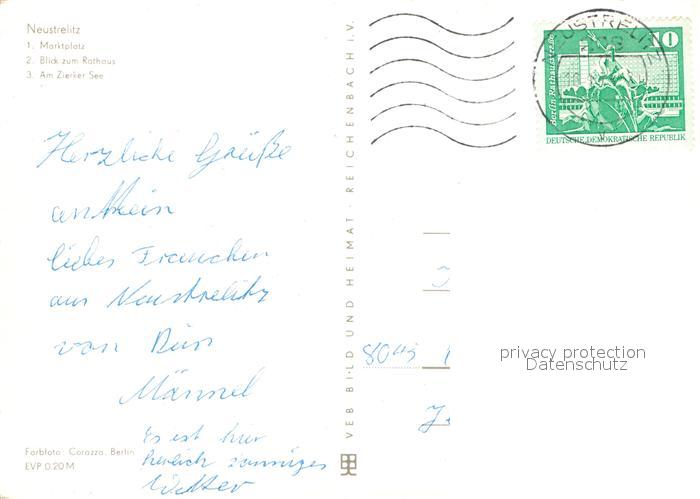 Neustrelitz
1. Marktplatz
2. Blick zum Rathaus
3. Am Zierker See
Herzliche Grüße
an Mein
liebes Frauchen
aus Neustrelitz
von Dein
Männel
Es ist hier
herrlich sonniges
Wetter
Farbfoto: Corazza, Berlin
EVP 0,20 M
VEB BILD UND HEIMAT · REICHENBACH I.V.
NEUSTRELITZ
Berlin-Rathausstraße
10
DEUTSCHE DEMOKRATISCHE REPUBLIK
privacy protection
Datenschutz